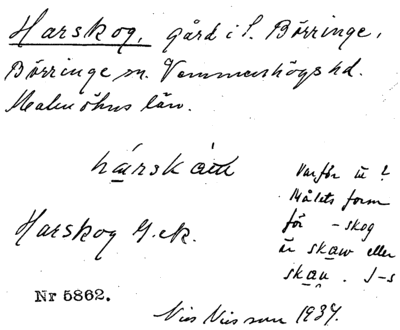 Harskog, gård i S. Börringe,
Börringe sn. Vemmenhögs hd.
Malmöhus län.
Harskog G.ek.
Varför u ?
Målets form
för - skog
är skaw eller
skau. I-s
Nr 5862.
Nils Nilsson 1934.